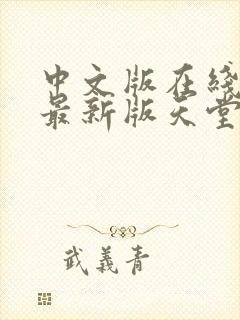 中文版在线
最新版天堂
武義青